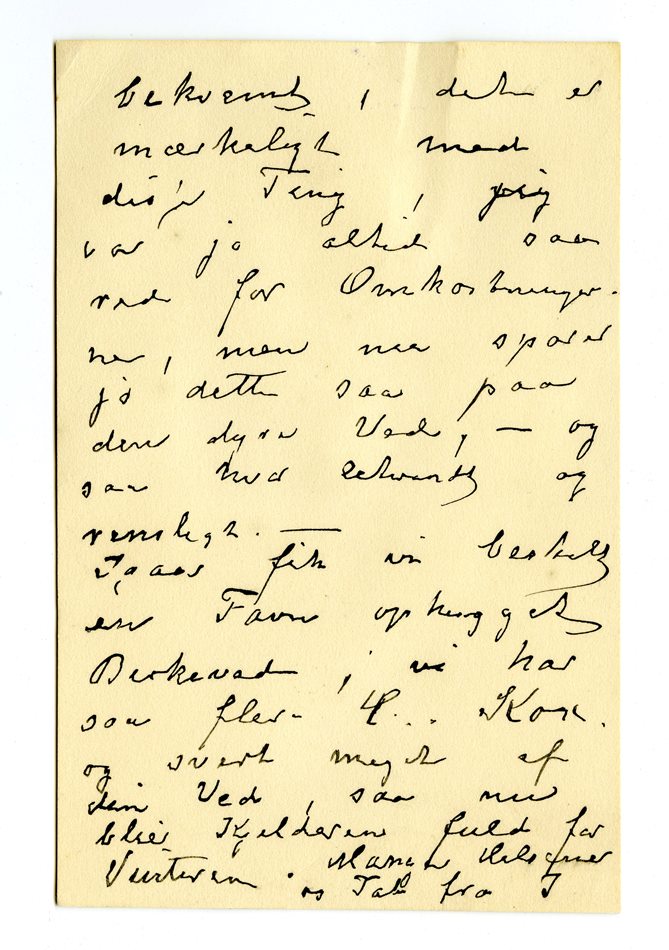 bekvemt, det er
mærkeligt med
disse Ting, jeg
var ja altid saa
red for Omkostninger-
ne, men nu sparer
jo dette saa paa
den dyre Ved, — og
saa hvor letvindt og
renslegt. —
Igaar fik vi bestilt
en Favn ophugget
Berkeved; vi har
saa flere H... Kox.
og svert meget af
den Ved, saa nu
blir Kjelderen fuld for
Vinteren. Mange Hilsener
og Tak fra J